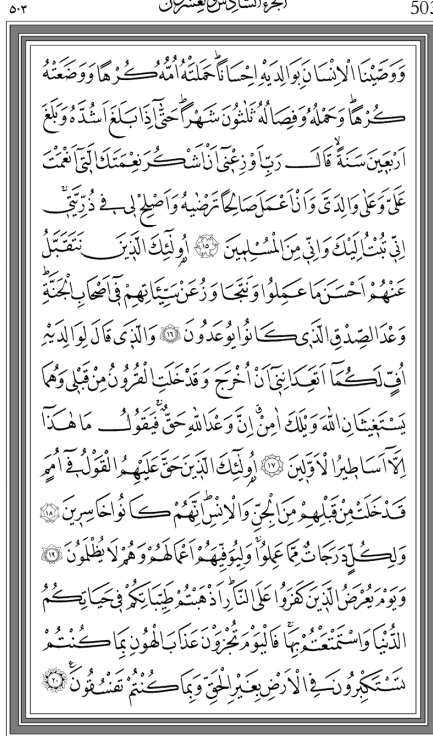 ٥٠٣ الجزء السادس والعشرون 503
وَوَصَّيْنَا الْاِنْسَانَ بِوَالِدَيْهِ اِحْسَانًاۜ حَمَلَتْهُ اُمُّهُ كُرْهًا وَوَضَعَتْهُ
كُرْهًاۜ وَحَمْلُهُ وَفِصَالُهُ ثَلٰثُونَ شَهْرًاۜ حَتّٰٓى اِذَا بَلَغَ اَشُدَّهُ وَبَلَغَ
اَرْبَعِينَ سَنَةًۙ قَالَ رَبِّ اَوْزِعْنِٓى اَنْ اَشْكُرَ نِعْمَتَكَ الَّتِٓى اَنْعَمْتَ
عَلَىَّ وَعَلٰى وَالِدَىَّ وَاَنْ اَعْمَلَ صَالِحًا تَرْضٰيهُ وَاَصْلِحْ لِى فِى ذُرِّيَّتِىۚ
اِنِّى تُبْتُ اِلَيْكَ وَاِنِّى مِنَ الْمُسْلِمِينَ ﴿١٥﴾ اُو۬لٰٓئِكَ الَّذِينَ نَتَقَبَّلُ
عَنْهُمْ اَحْسَنَ مَا عَمِلُوا وَنَتَجَاوَزُ عَنْ سَيِّـَٔاتِهِمْ فِٓى اَصْحَابِ الْجَنَّةِۜ
وَعْدَ الصِّدْقِ الَّذِى كَانُوا يُوعَدُونَ ﴿١٦﴾ وَالَّذِى قَالَ لِوَالِدَيْهِ
اُفٍّ لَكُمَٓا اَتَعِدَانِنِٓى اَنْ اُخْرَجَ وَقَدْ خَلَتِ الْقُرُونُ مِنْ قَبْلِى وَهُمَا
يَسْتَغِيثَانِ اللّٰهَ وَيْلَكَ اٰمِنْۗ اِنَّ وَعْدَ اللّٰهِ حَقٌّۚ فَيَقُولُ مَا هٰذَٓا
اِلَّٓا اَسَاطِيرُ الْاَوَّلِينَ ﴿١٧﴾ اُو۬لٰٓئِكَ الَّذِينَ حَقَّ عَلَيْهِمُ الْقَوْلُ فِٓى اُمَمٍ
قَدْ خَلَتْ مِنْ قَبْلِهِمْ مِنَ الْجِنِّ وَالْاِنْسِۜ اِنَّهُمْ كَانُوا خَاسِرِينَ ﴿١٨﴾
وَلِكُلٍّ دَرَجَاتٌ مِمَّا عَمِلُواۚ وَلِيُوَفِّيَهُمْ اَعْمَالَهُمْ وَهُمْ لَا يُظْلَمُونَ ﴿١٩﴾
وَيَوْمَ يُعْرَضُ الَّذِينَ كَفَرُوا عَلَى النَّارِۜ اَذْهَبْتُمْ طَيِّبَاتِكُمْ فِى حَيَاتِكُمُ
الدُّنْيَا وَاسْتَمْتَعْتُمْ بِهَاۚ فَالْيَوْمَ تُجْزَوْنَ عَذَابَ الْهُونِ بِمَا كُنْتُمْ
تَسْتَكْبِرُونَ فِى الْاَرْضِ بِغَيْرِ الْحَقِّ وَبِمَا كُنْتُمْ تَفْسُقُونَ۟ ﴿٢٠﴾